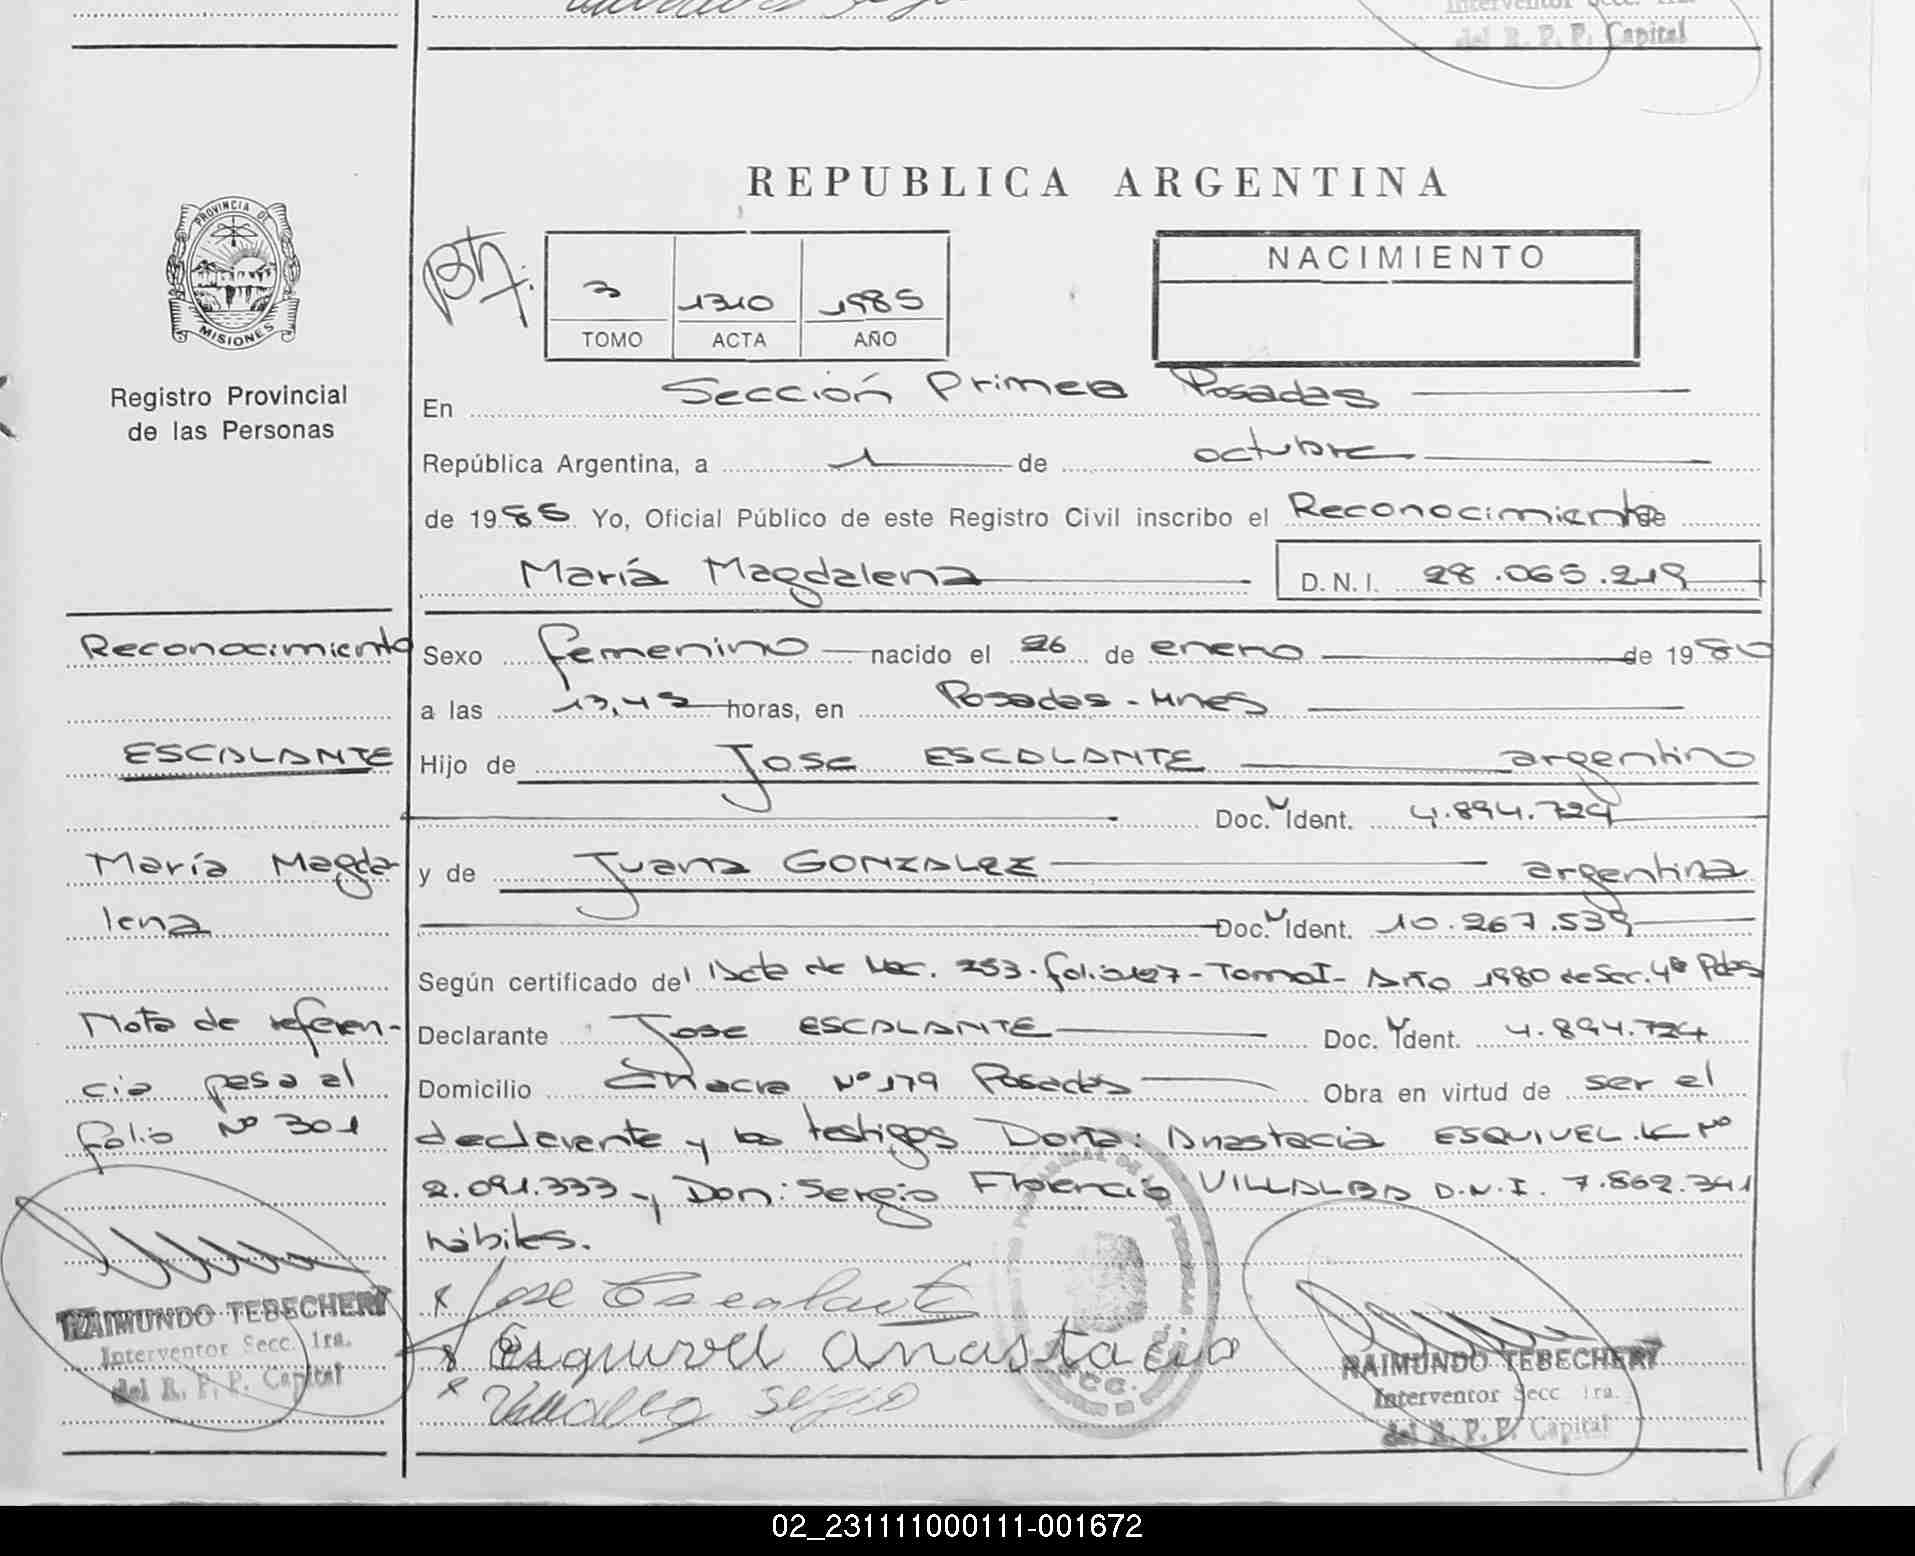 Interventor Secc. 1ra.
del R. P. P. Capital
REPUBLICA ARGENTINA
PROVINCIA DE
MISIONES
Registro Provincial
de las Personas
3 1310 1985
TOMO ACTA AÑO
NACIMIENTO
En Sección Primera Posadas
República Argentina, a 1 de octubre
de 1985 Yo, Oficial Público de este Registro Civil inscribo el Reconocimiento de
María Magdalena D.N.I. 28.065.219
Reconocimiento
ESCALANTE
María Magda
lena
Nota de referen-
cia pasa al
folio Nº 301
RAIMUNDO TEBECHERI
Interventor Secc. 1ra.
del R. P. P. Capital
Sexo femenino nacido el 26 de enero de 1980
a las 13,45 horas, en Posadas - Mnes
Hijo de Jose ESCALANTE argentino
Doc. M Ident. 4.894.724
y de Juana GONZALEZ argentina
Doc. M Ident. 10.267.539
Según certificado del Acta de Nac. 253. folio 127 - Tomo I - Año 1980 de Sec. 4ª Pdas
Declarante Jose ESCALANTE Doc. M Ident. 4.894.724
Domicilio Chacra Nº 179 Posadas Obra en virtud de ser el
declarante y los testigos Doña: Anastacia ESQUIVEL. LC Nº
2.091.333 y Don: Sergio Florencio VILLALBA D.N.I. 7.862.341
hábiles.
x Jose Escalante
x Esquivel Anastacia
x Villalba Sergio
RAIMUNDO TEBECHERI
Interventor Secc 1ra.
del R. P. P. Capital
02_231111000111-001672